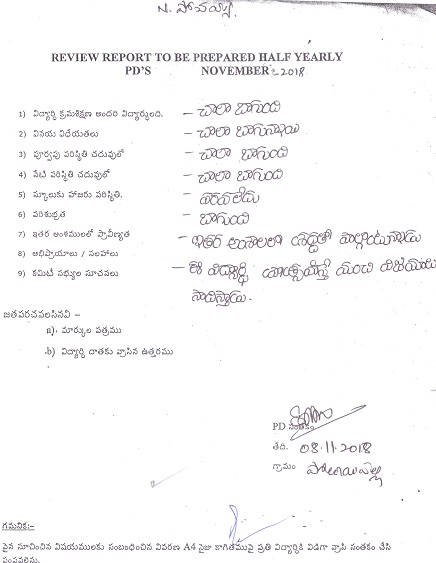 N. పోచయ్య
REVIEW REPORT TO BE PREPARED HALF YEARLY
PD'S NOVEMBER - 2018
1) విద్యార్థి క్రమశిక్షణ అందరి విద్యార్థులది. - చాలా బాగుంది
2) వినయ విధేయతలు - చాలా బాగున్నాయి
3) పూర్వపు పరిస్థితి చదువులో - చాలా బాగుంది
4) నేటి పరిస్థితి చదువులో - చాలా బాగుంది
5) స్కూలుకు హాజరు పరిస్థితి. -
6) పరిశుభ్రత - బాగుంది
7) ఇతర అంశములలో ప్రావీణ్యత - ఇతర అంశాలలో శ్రద్ధతో పాల్గొంటున్నాడు
8) అభిప్రాయాలు / సలహాలు
9) కమిటీ సభ్యుల సూచనలు - ఈ విద్యార్థి మంచి విజయాలు
సాధిస్తాడు.
జతపరచవలసినవి –
a). మార్కుల పత్రము
b) విద్యార్థి దాతకు వ్రాసిన ఉత్తరము
PD సంతకం
తేది. 08.11.2018
గ్రామం
గమనిక:-
పైన సూచించిన విషయములకు సంబంధించిన వివరణ A4 సైజు కాగితముపై ప్రతి విద్యార్థికి విడిగా వ్రాసి సంతకం చేసి
పంపవలెను.